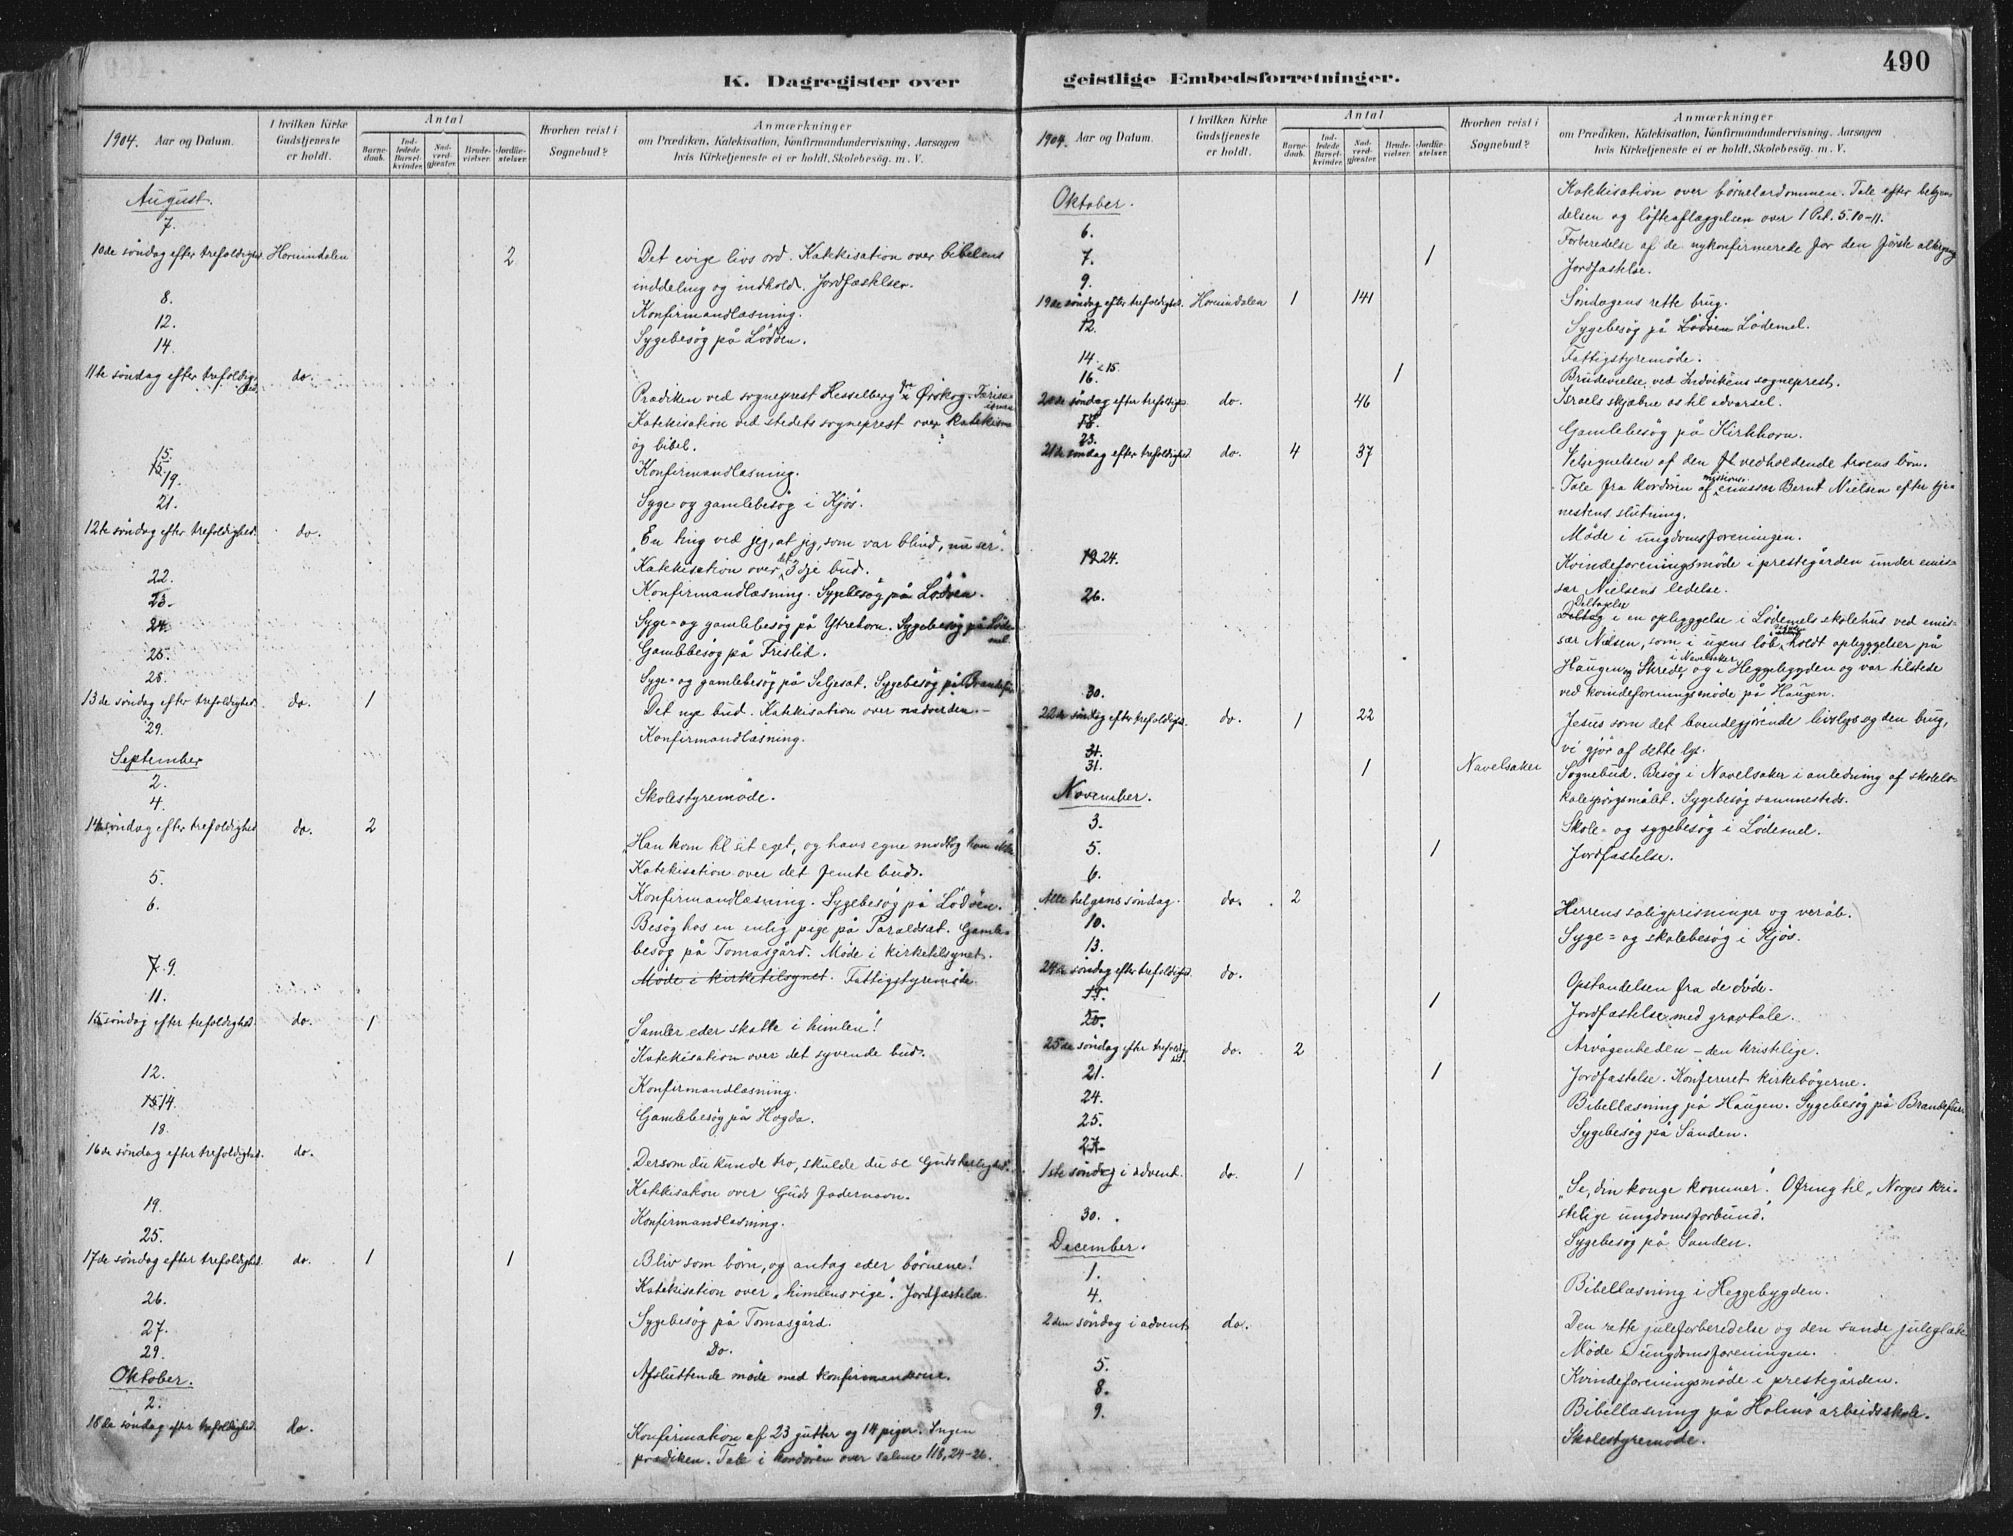 490
K. Dagregister over
geistlige Embedsforretninger.
1904. Aar og Datum.
I hvilken Kirke Gudstjeneste er holdt.
Antal
Barnedaab.
Indledede Barselkvinder.
Nadverdgjester.
Brudevielser.
Jordfæstelser.
Hvorhen reist i Sognebud?
Anmærkninger
om Prædiken, Katekisation, Konfirmandundervisning. Aarsagen
hvis Kirketjeneste ei er holdt. Skolebesøg. m. V.
August.
7.
10de søndag efter trefoldighed. Hornindalen 2 Det evige livs ord. Katekisation over bibelens
inddeling og indhold. Jordfæstelser.
8. Konfirmandlæsning.
12. Sygebesøg på Lødøen.
14.
11te søndag efter trefoldighed do.
Prædiken ved sogneprest Hesselberg fra Ørskog. Farisæismen
Katekisation ved stedets sogneprest over katekisme
og bibel.
15. Konfirmandlæsning.
15. 19. Syge og gamlebesøg i Kjøs.
21.
12te søndag efter trefoldighed. do. "En ting ved jeg, at jeg, som var blind, nu ser".
Katekisation over det 3dje bud.
22. Konfirmandlæsning. Sygebesøg på Lødøen.
23. Syge= og gamlebesøg på Ytrehorn. Sygebesøg på Lødemel
24. Gamlebesøg på Frislid.
25. Syge= og gamlebesøg på Seljeset. Sygebesøg på
28.
13de søndag efter trefoldighed. do. 1 Det nye bud. Katekisation over nadverden.
29. Konfirmandlæsning.
September
2. Skolestyremøde.
4.
14de søndag efter trefoldighed do. 2 "Han kom til sit eget, og hans egne modtog ham ikke"
Katekisation over det femte bud.
5. Konfirmandlæsning. Sygebesøg på Lødøen.
6. Besøg hos en enlig pige på Paraldsat. Gamlebesøg
på Tomasgård. Møde i kirketilsynet.
7. 9. Møde i kirketilsynet. Fattigstyremøde
11.
15 søndag efter trefoldighed. do. 1 "Samler eder skatte i himlen"!
Katekisation over det syvende bud.
12. Konfirmandlæsning.
13. 14. Gamlebesøg på Hogda.
18.
16de søndag efter trefoldighed. do. "Dersom du kunde tro, skulde du se Guds herlighed".
Katekisation over Guds fadernavn.
19. Konfirmandlæsning.
25.
17de søndag efter trefoldighed. do. 1 1 Bliv som børn, og antag eder børnene!
Katekisation over "himlens rige". Jordfæstelse.
26. Sygebesøg på Tomasgård.
27. Do.
29. Afsluttende møde med konfirmanderne.
Oktober.
2.
18de søndag efter trefoldighed. do.
Konfirmation af 23 gutter og 14 piger. Ingen
prædiken. Tale i kordøren over salme 118, 24-26.
1904. Aar og Datum.
I hvilken Kirke Gudstjeneste er holdt.
Antal
Barnedaab.
Indledede Barselkvinder.
Nadverdgjester.
Brudevielser.
Jordfæstelser.
Hvorhen reist i Sognebud?
Anmærkninger
om Prædiken, Katekisation, Konfirmandundervisning. Aarsagen
hvis Kirketjeneste ei er holdt. Skolebesøg. m. V.
Oktober.
Katekisation over børnelærdommen. Tale efter bekjendelsen
og løfteaflæggelsen over 1 Pet. 5. 10-11.
6. Forberedelse af de nykonfirmerede for den første altergang
7. 1 Jordfæstelse.
9.
19de søndag efter trefoldighed. Hornindalen 1 141 Søndagens rette brug.
12. Sygebesøg på Lødøen Lødemel.
14. Fattigstyremøde.
15. 16. 1 Brudevielse ved Indvikens sogneprest.
20de søndag efter trefoldighed. do. 46 Israels skjæbne os til advarsel.
18. Gamlebesøg på Kirkhorn.
23.
21de søndag efter trefoldighed. do. 4 37 Velsignelsen af den vedholdende troens bøn.
Tale fra kordøren af missionsemissær Bernt Nielsen efter tjenestens
slutning.
Møde i ungdomsforeningen.
19 24. Kvindeforeningsmøde i prestegården under emissær
Nielsens ledelse.
26. Deltagelse i en opbyggelse i Lødemels skolehus ved emissær
Nielsen, som i ugens løb holdt opbyggelser på
Haugen, Skrede, i Navelsaker og i Heggebygden og var tilstede
30. ved kvindeforeningsmøde på Haugen.
22de søndag efter trefoldighed. do. 1 22 Jesus som det levendegjørende livslys og den brug,
vi gjør af dette lys.
31.
31. 1 Navelsaker Sognebud. Besøg i Navelsaker i anledning af
Sygebesøg sammesteds.
November.
3. Skole= og sygebesøg i Lødemel.
5. 1 Jordfæstelse.
6.
Alle helgens søndag. do. 2 Herrens saligprisninger og veråb.
10. Syge= og skolebesøg i Kjøs.
13.
24de søndag efter trefoldighed do. Opstandelsen fra de døde.
17. 1 Jordfæstelse med gravtale.
20.
25de søndag efter trefoldighed do. 2 Årvågenheden – den kristelige.
21. 1 Jordfæstelse. Konfereret kirkebøgerne.
24. Bibellæsning på Haugen. Sygebesøg på
25. Sygebesøg på Sanden.
27.
1ste søndag i advent. do. 1 "Se, din konge kommer". Ofring til "Norges kristelige
ungdomsforbund".
30. Sygebesøg på Sanden.
December.
1. Bibellæsning i Heggebygden.
4.
2den søndag i advent do. Den rette juleforberedelse og den sande juleglæde
Møde i ungdomsforeningen.
5. Kvindeforeningsmøde i prestegården.
8. Bibellæsning på Holmø arbeidsskole.
9. Skolestyremøde.